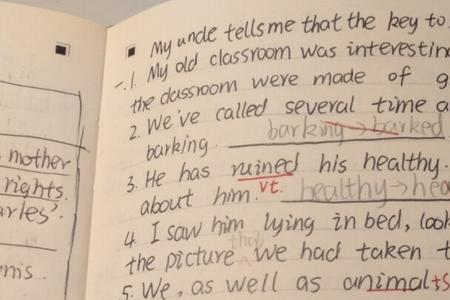 mother
rights.
arles'.
My uncle tells me that the key to
1. My old classroom was interestin
the classroom were made of g
2. We've called several time a
barking. barking→barked
3. He has ruined his healthy.
about him. vt. healthy→hea
4. I saw him lying in bed, look
the picture that we had taken t
5. We, as well as animal+s